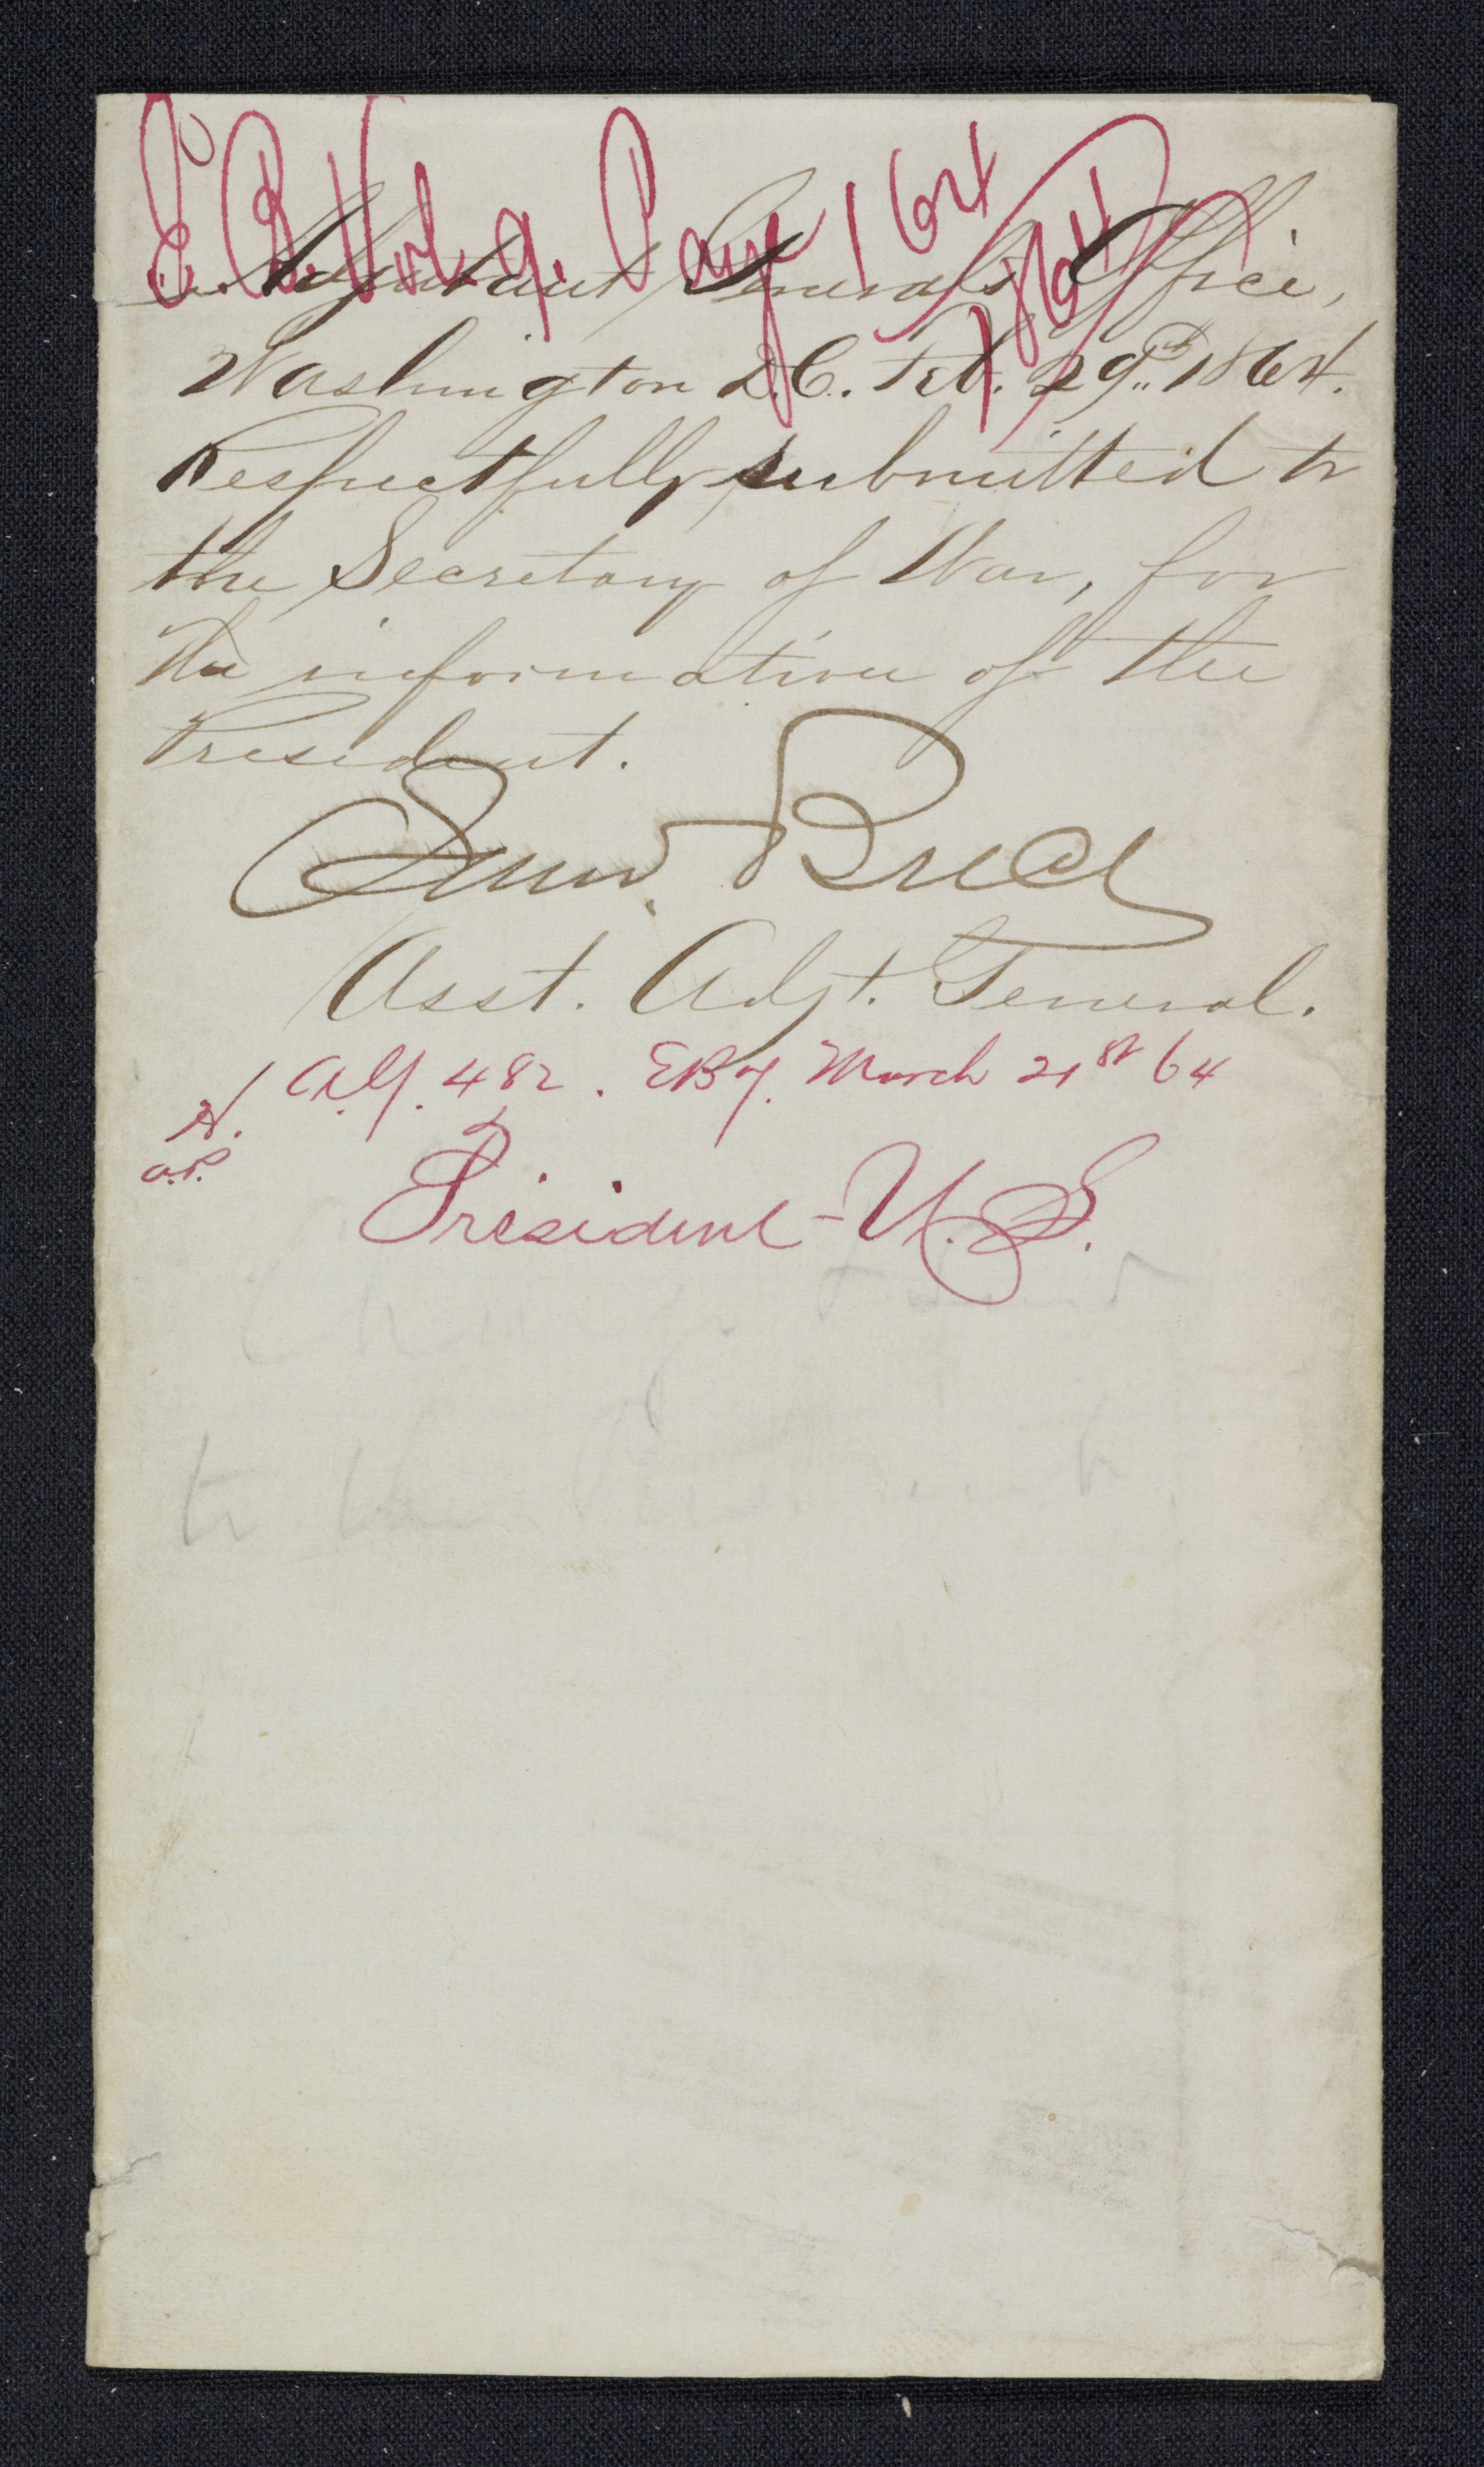 E. B. Vol 9. Page 164
1864
Adjutant General's Office,
Washington D.C. Feb. 29th 1864.
Respectfully submitted to
the Secretary of War, for
the information of the
President.
Saml. Breck
Asst. Adjt. General.
482. EB 7. March 21st 64
President U.S.
to the